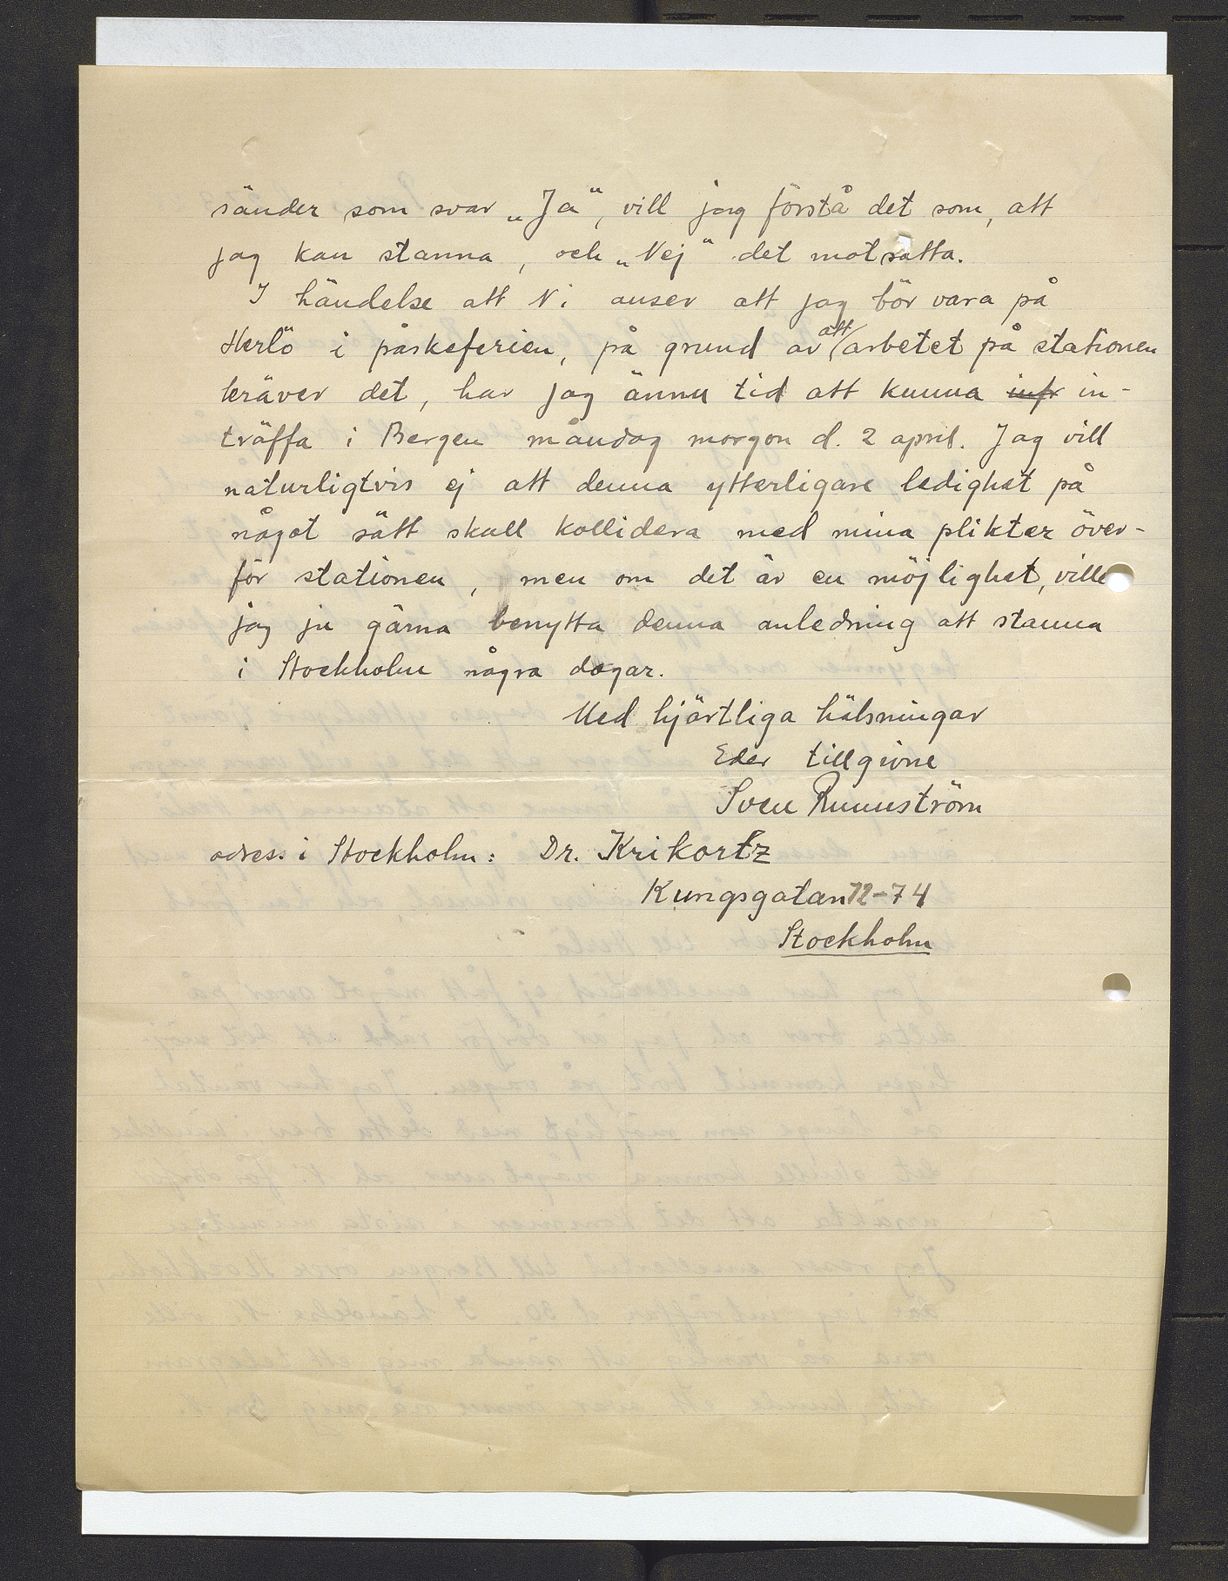 sänder som svar „Ja“, vill jag förstå det som, att
jag kan stanna, och „Nej“ det motsatta.
I händelse att Ni anser att jag bör vara på
Herlö i påskeferien, på grund av att arbetet på stationen
kräver det, har jag ännu tid att kunna infr in-
träffa i Bergen måndag morgon d. 2 april. Jag vill
naturligtvis ej att denna ytterligare ledighet på
något sätt skall kollidera med mina plikter över-
för stationen, men om det är en möjlighet, ville
jag ju gärna benytta denna anledning att stanna
i Stockholm några dagar.
Med hjärtliga hälsningar
Eder tillgivne
Sven Runnström
adress i Stockholm: Dr. Krikortz
Kungsgatan 72-74
Stockholm